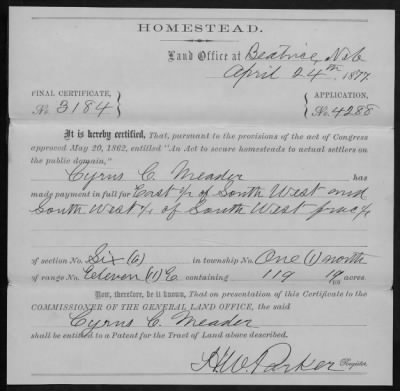 HOMESTEAD.
Land Office at Beatrice, Neb
April 24th, 1877.
FINAL CERTIFICATE,
No. 3184
APPLICATION,
No. 4288
It is hereby certified, That, pursuant to the provisions of the act of Congress
approved May 20, 1862, entitled "An Act to secure homesteads to actual settlers on
the public domain,"
Cyrus C. Meader has
made payment in full for East ½ of South West and
South West ¼ of South West frac ¼
of section No. Six (6) in township No. One (1) north
of range No. Eleven (11) E containing 119 /100 acres.
Now, therefore, be it known, That on presentation of this Certificate to the
COMMISSIONER OF THE GENERAL LAND OFFICE, the said
Cyrus C. Meader
shall be entitled to a Patent for the Tract of Land above described.
H.W. Parker Register.